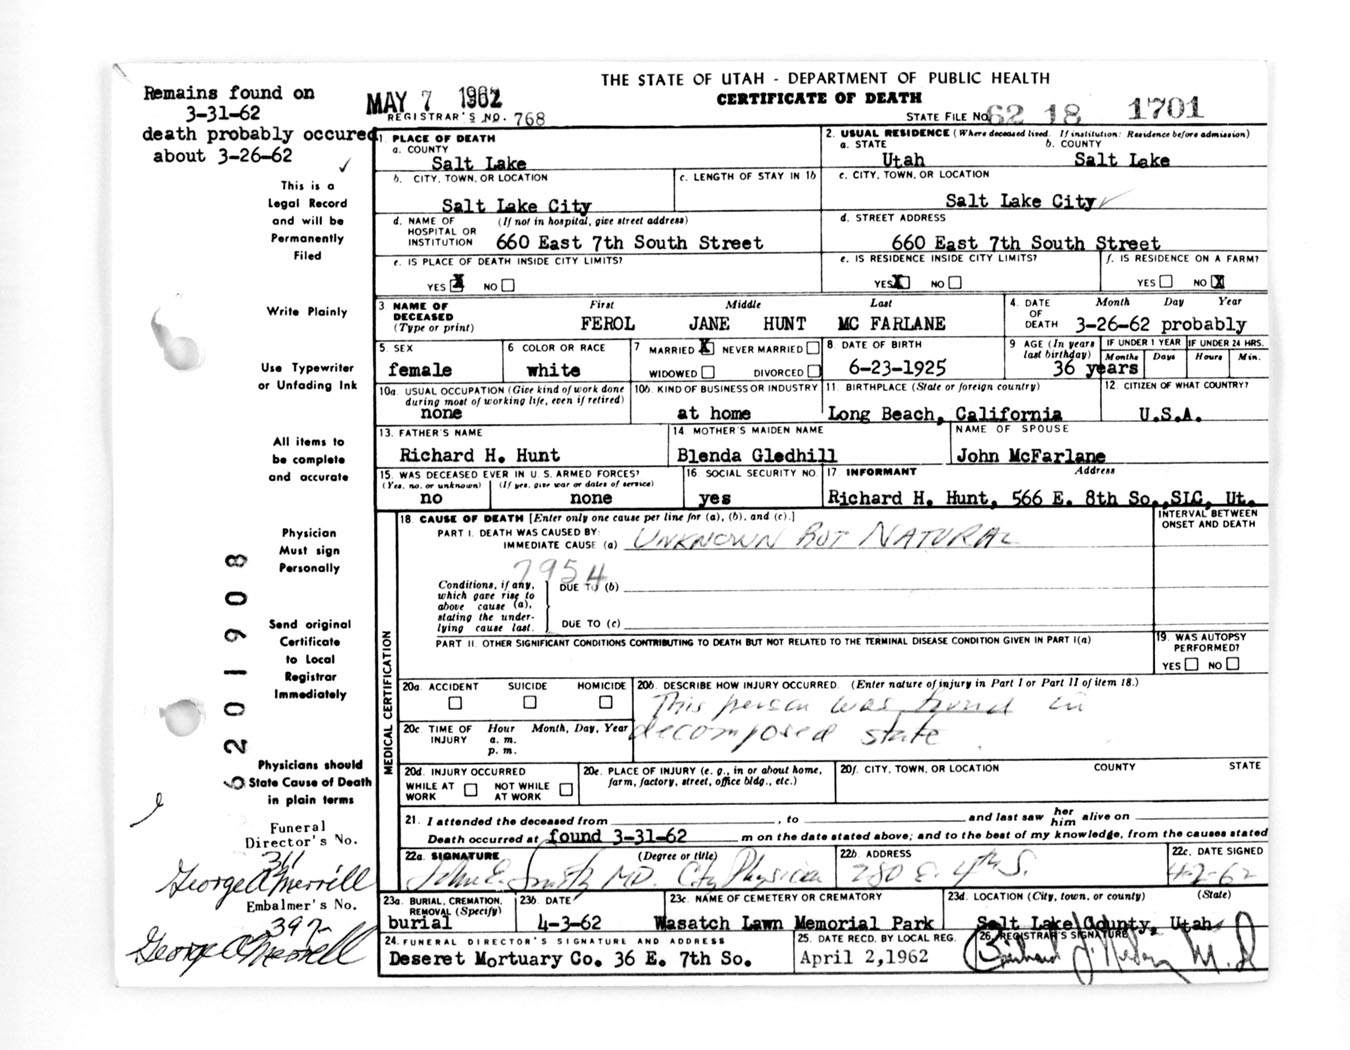 THE STATE OF UTAH - DEPARTMENT OF PUBLIC HEALTH
CERTIFICATE OF DEATH
MAY 7 1962
REGISTRAR'S NO. 768
STATE FILE NO. 62 18 1701
Remains found on
3-31-62
death probably occured
about 3-26-62
This is a
Legal Record
and will be
Permanently
Filed
Write Plainly
Use Typewriter
or Unfading Ink
All items to
be complete
and accurate
Physician
Must sign
Personally
Send original
Certificate
to Local
Registrar
Immediately
5201908
Physicians should
State Cause of Death
in plain terms
Funeral
Director's No.
311
George A Merrill
Embalmer's No.
397
George A Merrill
1. PLACE OF DEATH
a. COUNTY
Salt Lake
2. USUAL RESIDENCE (Where deceased lived. If institution: Residence before admission)
a. STATE b. COUNTY
Utah Salt Lake
b. CITY, TOWN, OR LOCATION
Salt Lake City
c. LENGTH OF STAY IN 1b
c. CITY, TOWN, OR LOCATION
Salt Lake City
d. NAME OF HOSPITAL OR INSTITUTION (If not in hospital, give street address)
660 East 7th South Street
d. STREET ADDRESS
660 East 7th South Street
e. IS PLACE OF DEATH INSIDE CITY LIMITS?
YES X NO
e. IS RESIDENCE INSIDE CITY LIMITS?
YES X NO
f. IS RESIDENCE ON A FARM?
YES NO X
3 NAME OF DECEASED (Type or print) First Middle Last
FEROL JANE HUNT MC FARLANE
4. DATE OF DEATH Month Day Year
3-26-62 probably
5. SEX
female
6 COLOR OR RACE
white
7 MARRIED X NEVER MARRIED
WIDOWED DIVORCED
8 DATE OF BIRTH
6-23-1925
9 AGE (In years last birthday)
36 years
IF UNDER 1 YEAR IF UNDER 24 HRS.
Months Days Hours Min.
10a. USUAL OCCUPATION (Give kind of work done during most of working life, even if retired)
none
10b. KIND OF BUSINESS OR INDUSTRY
at home
11. BIRTHPLACE (State or foreign country)
Long Beach, California
12. CITIZEN OF WHAT COUNTRY?
U.S.A.
13. FATHER'S NAME
Richard H. Hunt
14 MOTHER'S MAIDEN NAME
Blenda Gledhill
NAME OF SPOUSE
John McFarlane
15. WAS DECEASED EVER IN U.S. ARMED FORCES?
(Yes, no, or unknown) (If yes, give war or dates of service)
no none
16 SOCIAL SECURITY NO.
yes
17 INFORMANT Address
Richard H. Hunt, 566 E. 8th So., SLC, Ut.
MEDICAL CERTIFICATION
18. CAUSE OF DEATH [Enter only one cause per line for (a), (b), and (c).]
INTERVAL BETWEEN ONSET AND DEATH
PART I. DEATH WAS CAUSED BY:
IMMEDIATE CAUSE (a) UNKNOWN BUT NATURAL
7954
Conditions, if any, which gave rise to above cause (a), stating the underlying cause last.
DUE TO (b)
DUE TO (c)
PART II. OTHER SIGNIFICANT CONDITIONS CONTRIBUTING TO DEATH BUT NOT RELATED TO THE TERMINAL DISEASE CONDITION GIVEN IN PART I(a)
19. WAS AUTOPSY PERFORMED?
YES NO
20a. ACCIDENT SUICIDE HOMICIDE
20b. DESCRIBE HOW INJURY OCCURRED. (Enter nature of injury in Part I or Part II of item 18.)
This person was found in
decomposed state.
20c. TIME OF INJURY Hour Month, Day, Year
a. m.
p. m.
20d. INJURY OCCURRED
WHILE AT WORK NOT WHILE AT WORK
20e. PLACE OF INJURY (e. g., in or about home, farm, factory, street, office bldg., etc.)
20f. CITY, TOWN, OR LOCATION COUNTY STATE
21. I attended the deceased from , to and last saw her him alive on
Death occurred at found 3-31-62 m on the date stated above; and to the best of my knowledge, from the causes stated
22a. SIGNATURE (Degree or title)
John E. Smith MD. City Physician
22b. ADDRESS
280 E. 4th S.
22c. DATE SIGNED
4-2-62
23a. BURIAL, CREMATION, REMOVAL (Specify)
burial
23b. DATE
4-3-62
23c. NAME OF CEMETERY OR CREMATORY
Wasatch Lawn Memorial Park
23d. LOCATION (City, town, or county) (State)
Salt Lake County, Utah
24. FUNERAL DIRECTOR'S SIGNATURE AND ADDRESS
Deseret Mortuary Co. 36 E. 7th So.
25. DATE RECD. BY LOCAL REG.
April 2,1962
26. REGISTRAR'S SIGNATURE
M.D